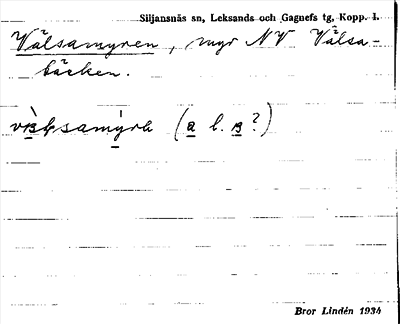 Siljansnäs sn, Leksands och Gagnefs tg, Kopp. l.
Välsamyren, myr NV Välsa-
bäcken.
(a l. ʙ?)
Bror Lindén 1934